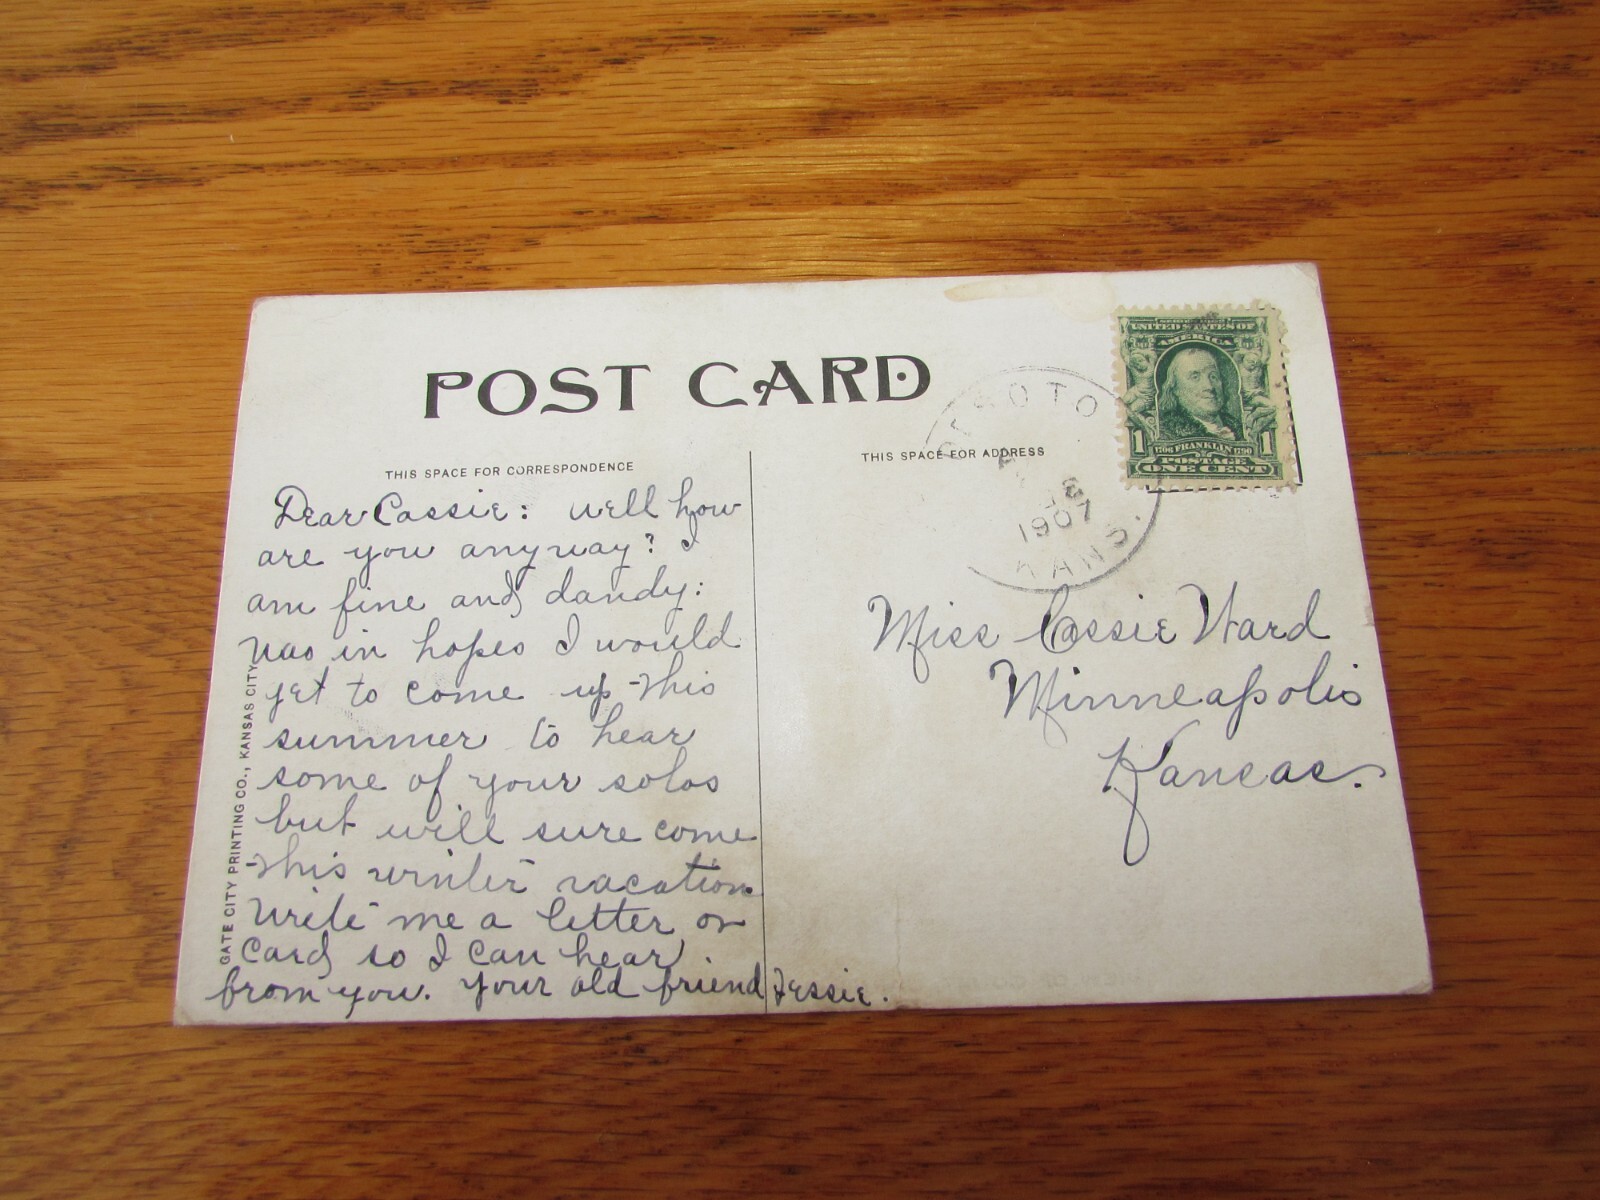 POST CARD
THIS SPACE FOR CORRESPONDENCE
Dear Cassie: well how
are you anyway? I
am fine and dandy:
was in hopes I would
get to come up this
summer to hear
some of your solos
but will sure come
this winter vacation
write me a letter or
card so I can hear
from you. Your old friend Jessie.
GATE CITY PRINTING CO., KANSAS CITY
THIS SPACE FOR ADDRESS
DESOTO
1907
KANS.
UNITED STATES OF
AMERICA
1 1706 FRANKLIN 1790 1
POSTAGE
ONE CENT
Miss Cassie Ward
Minneapolis
Kansas.